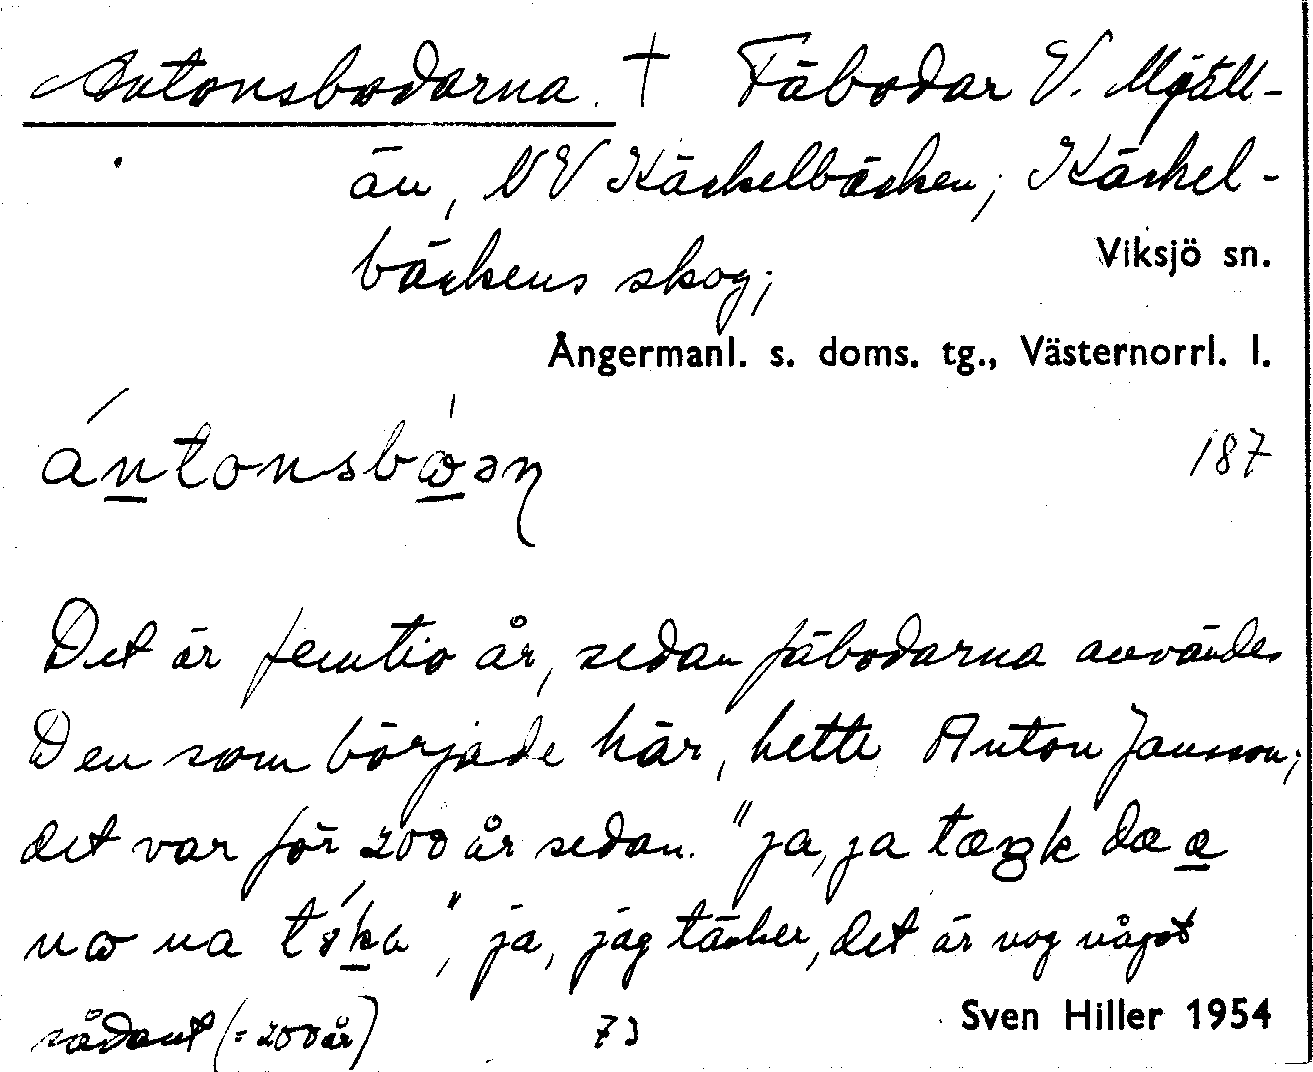 Antonsbodarna. † Fäbodar V. Mjäll-
ån, NV Käckelbäcken; Käckel-
bäckens skog;
Viksjö sn.
Ångermanl. s. doms. tg., Västernorrl. l.
ántonsbὼəɳ
187
Det är femtio år, sedan fäbodarna användes
Den som började här, hette Anton Jansson;
det var för 200 år sedan. "ja, ja tæŋk dæ æ
nω na tóka", ja, jag täcker, det är nog något
sådant (= 200 år)
73
Sven Hiller 1954